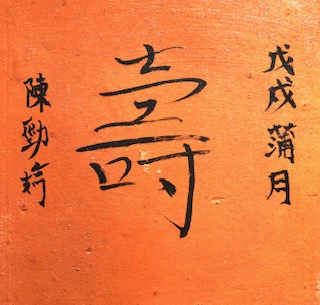 戊戌蒲月
壽
陳勁